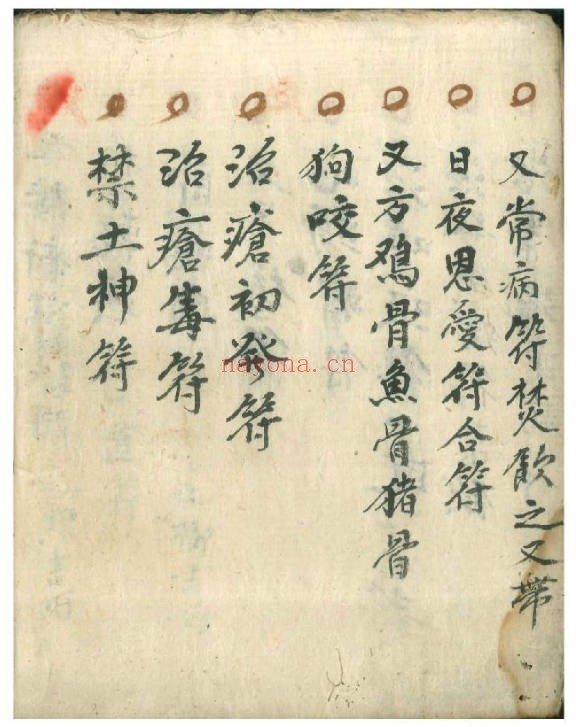 又常病符焚飲之又帶
日夜恩愛符合符
又方鸡骨魚骨猪骨
狗咬符
治瘡初發符
治瘡毒符
禁土神符
nayona.cn